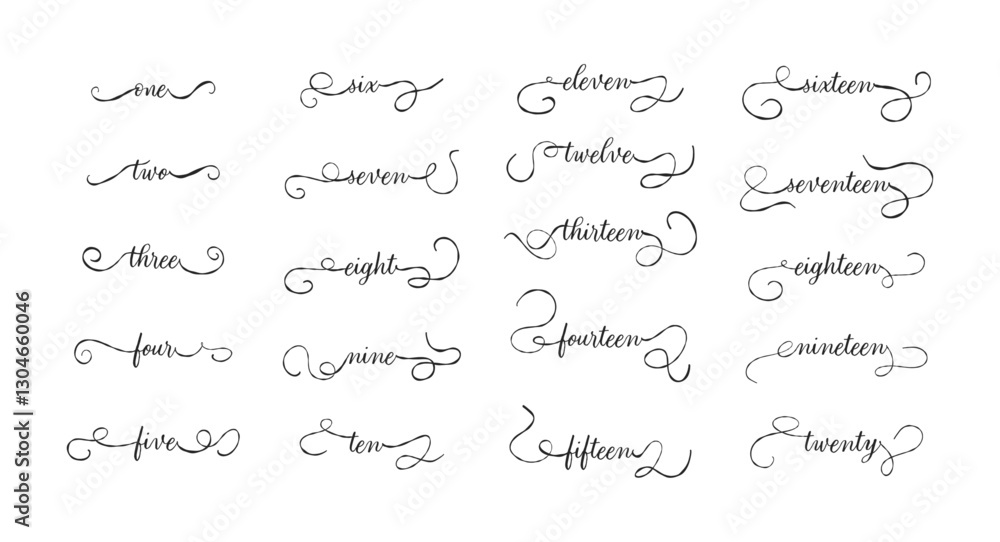 one
two
three
four
five
six
seven
eight
nine
ten
eleven
twelve
thirteen
fourteen
fifteen
sixteen
seventeen
eighteen
nineteen
twenty
Adobe Stock | #1304660046